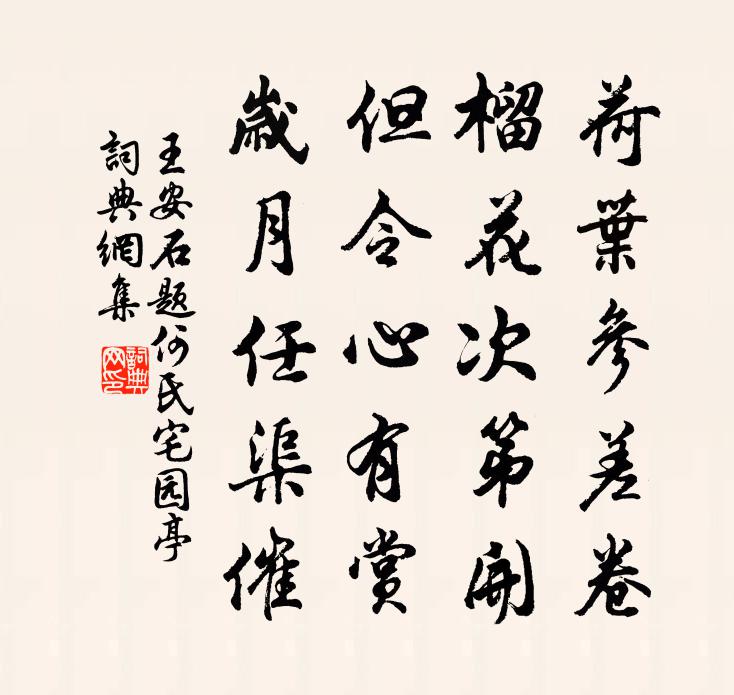 荷葉參差卷
榴花次第開
但令心有賞
歲月任渠催
王安石題何氏宅园亭
詞典網集
詞典网印